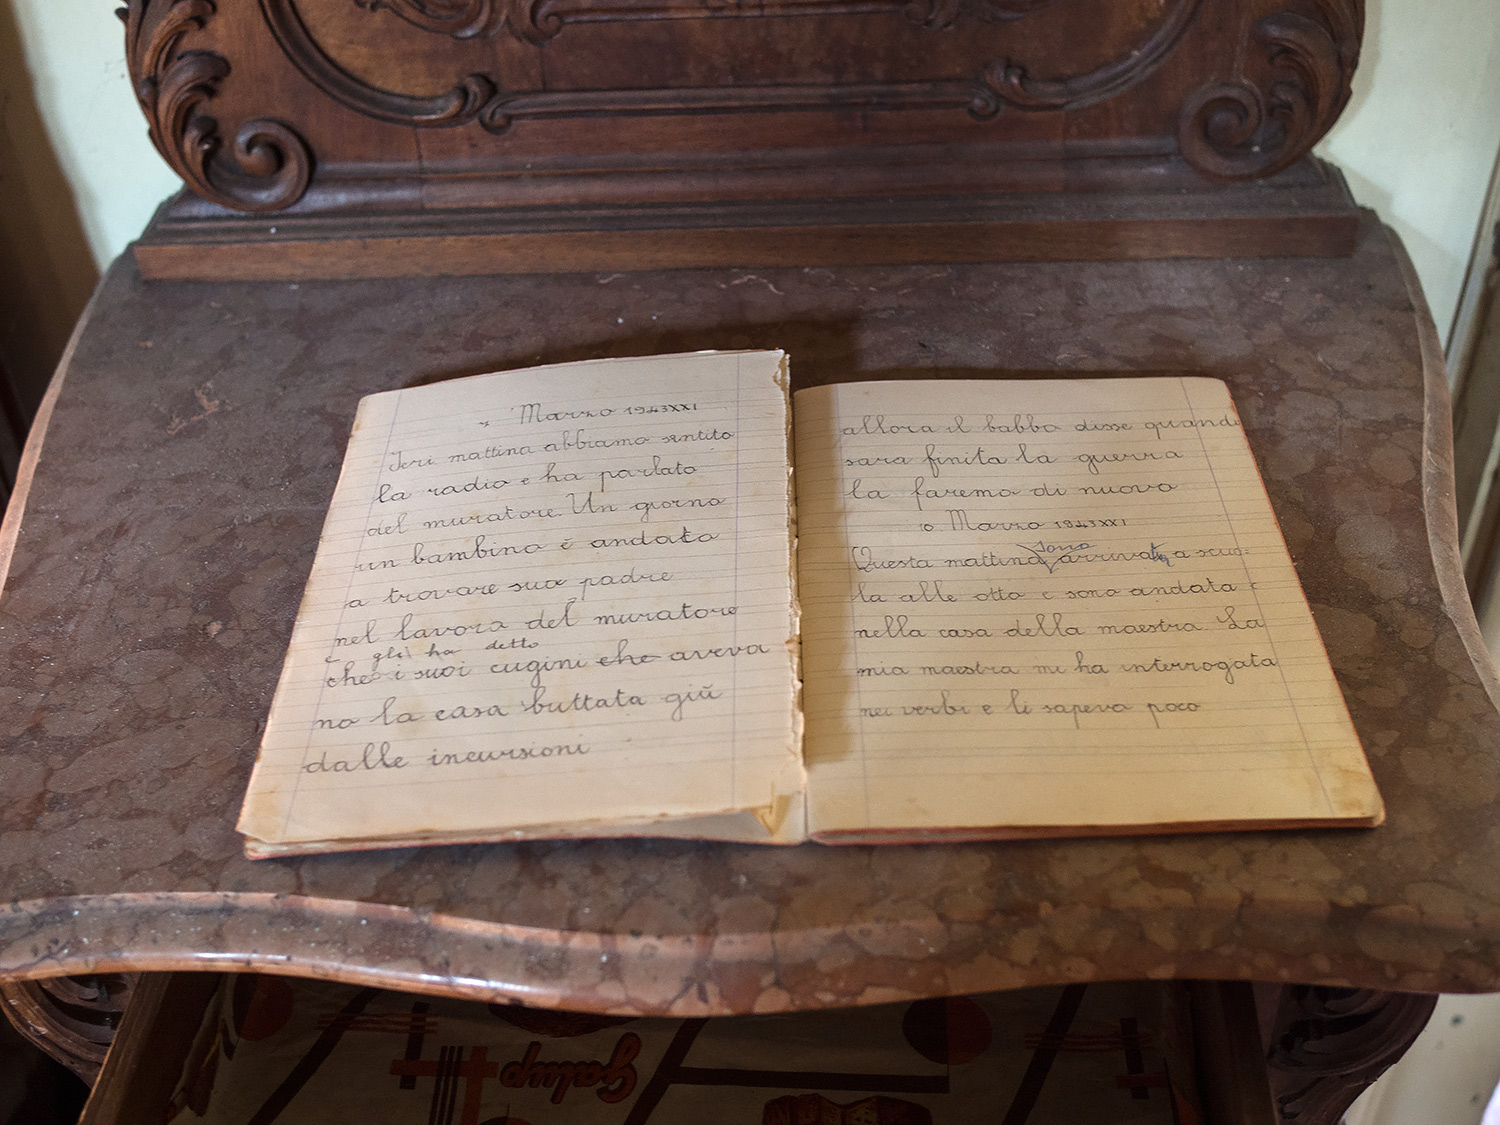 7 Marzo 1943 XXI
Ieri mattina abbiamo sentito
la radio e ha parlato
del muratore. Un giorno
un bambino è andato
a trovare suo padre
nel lavoro del muratore
e gli ha detto
che i suoi cugini che aveva
no la casa buttata giù
dalle incursioni
allora il babbo disse quando
sara finita la guerra
la faremo di nuovo
10 Marzo 1943 XXI
sono
Questa mattina arrivata a scuo-
la alle otto e sono andata
nella casa della maestra. La
mia maestra mi ha interrogata
nei verbi e li sapevo poco
galup